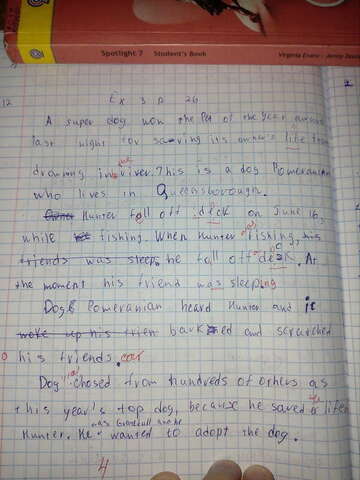 Spotlight 7 Student's Book Virginia Evans - Jenny
12 Ex 3 p 26
A super dog won the Pet of the Year
last night for saving its owner's life from
drawning in the river. This is a dog Pomeranian
who lives in Queensborough.
Hunter fall off deck on June 16,
while fishing. When Hunter fishing, his
friends was sleep, he fall off deck. At
the moment his friend was sleeping
Dog Pomeranian heard Hunter and it
woke up his frien barked and scratched
his friends. ear
Dog chosed from hundreds of others as
this year's top dog, because he saved life
was Gratefull and he
Hunter. He wanted to adopt the dog.
4